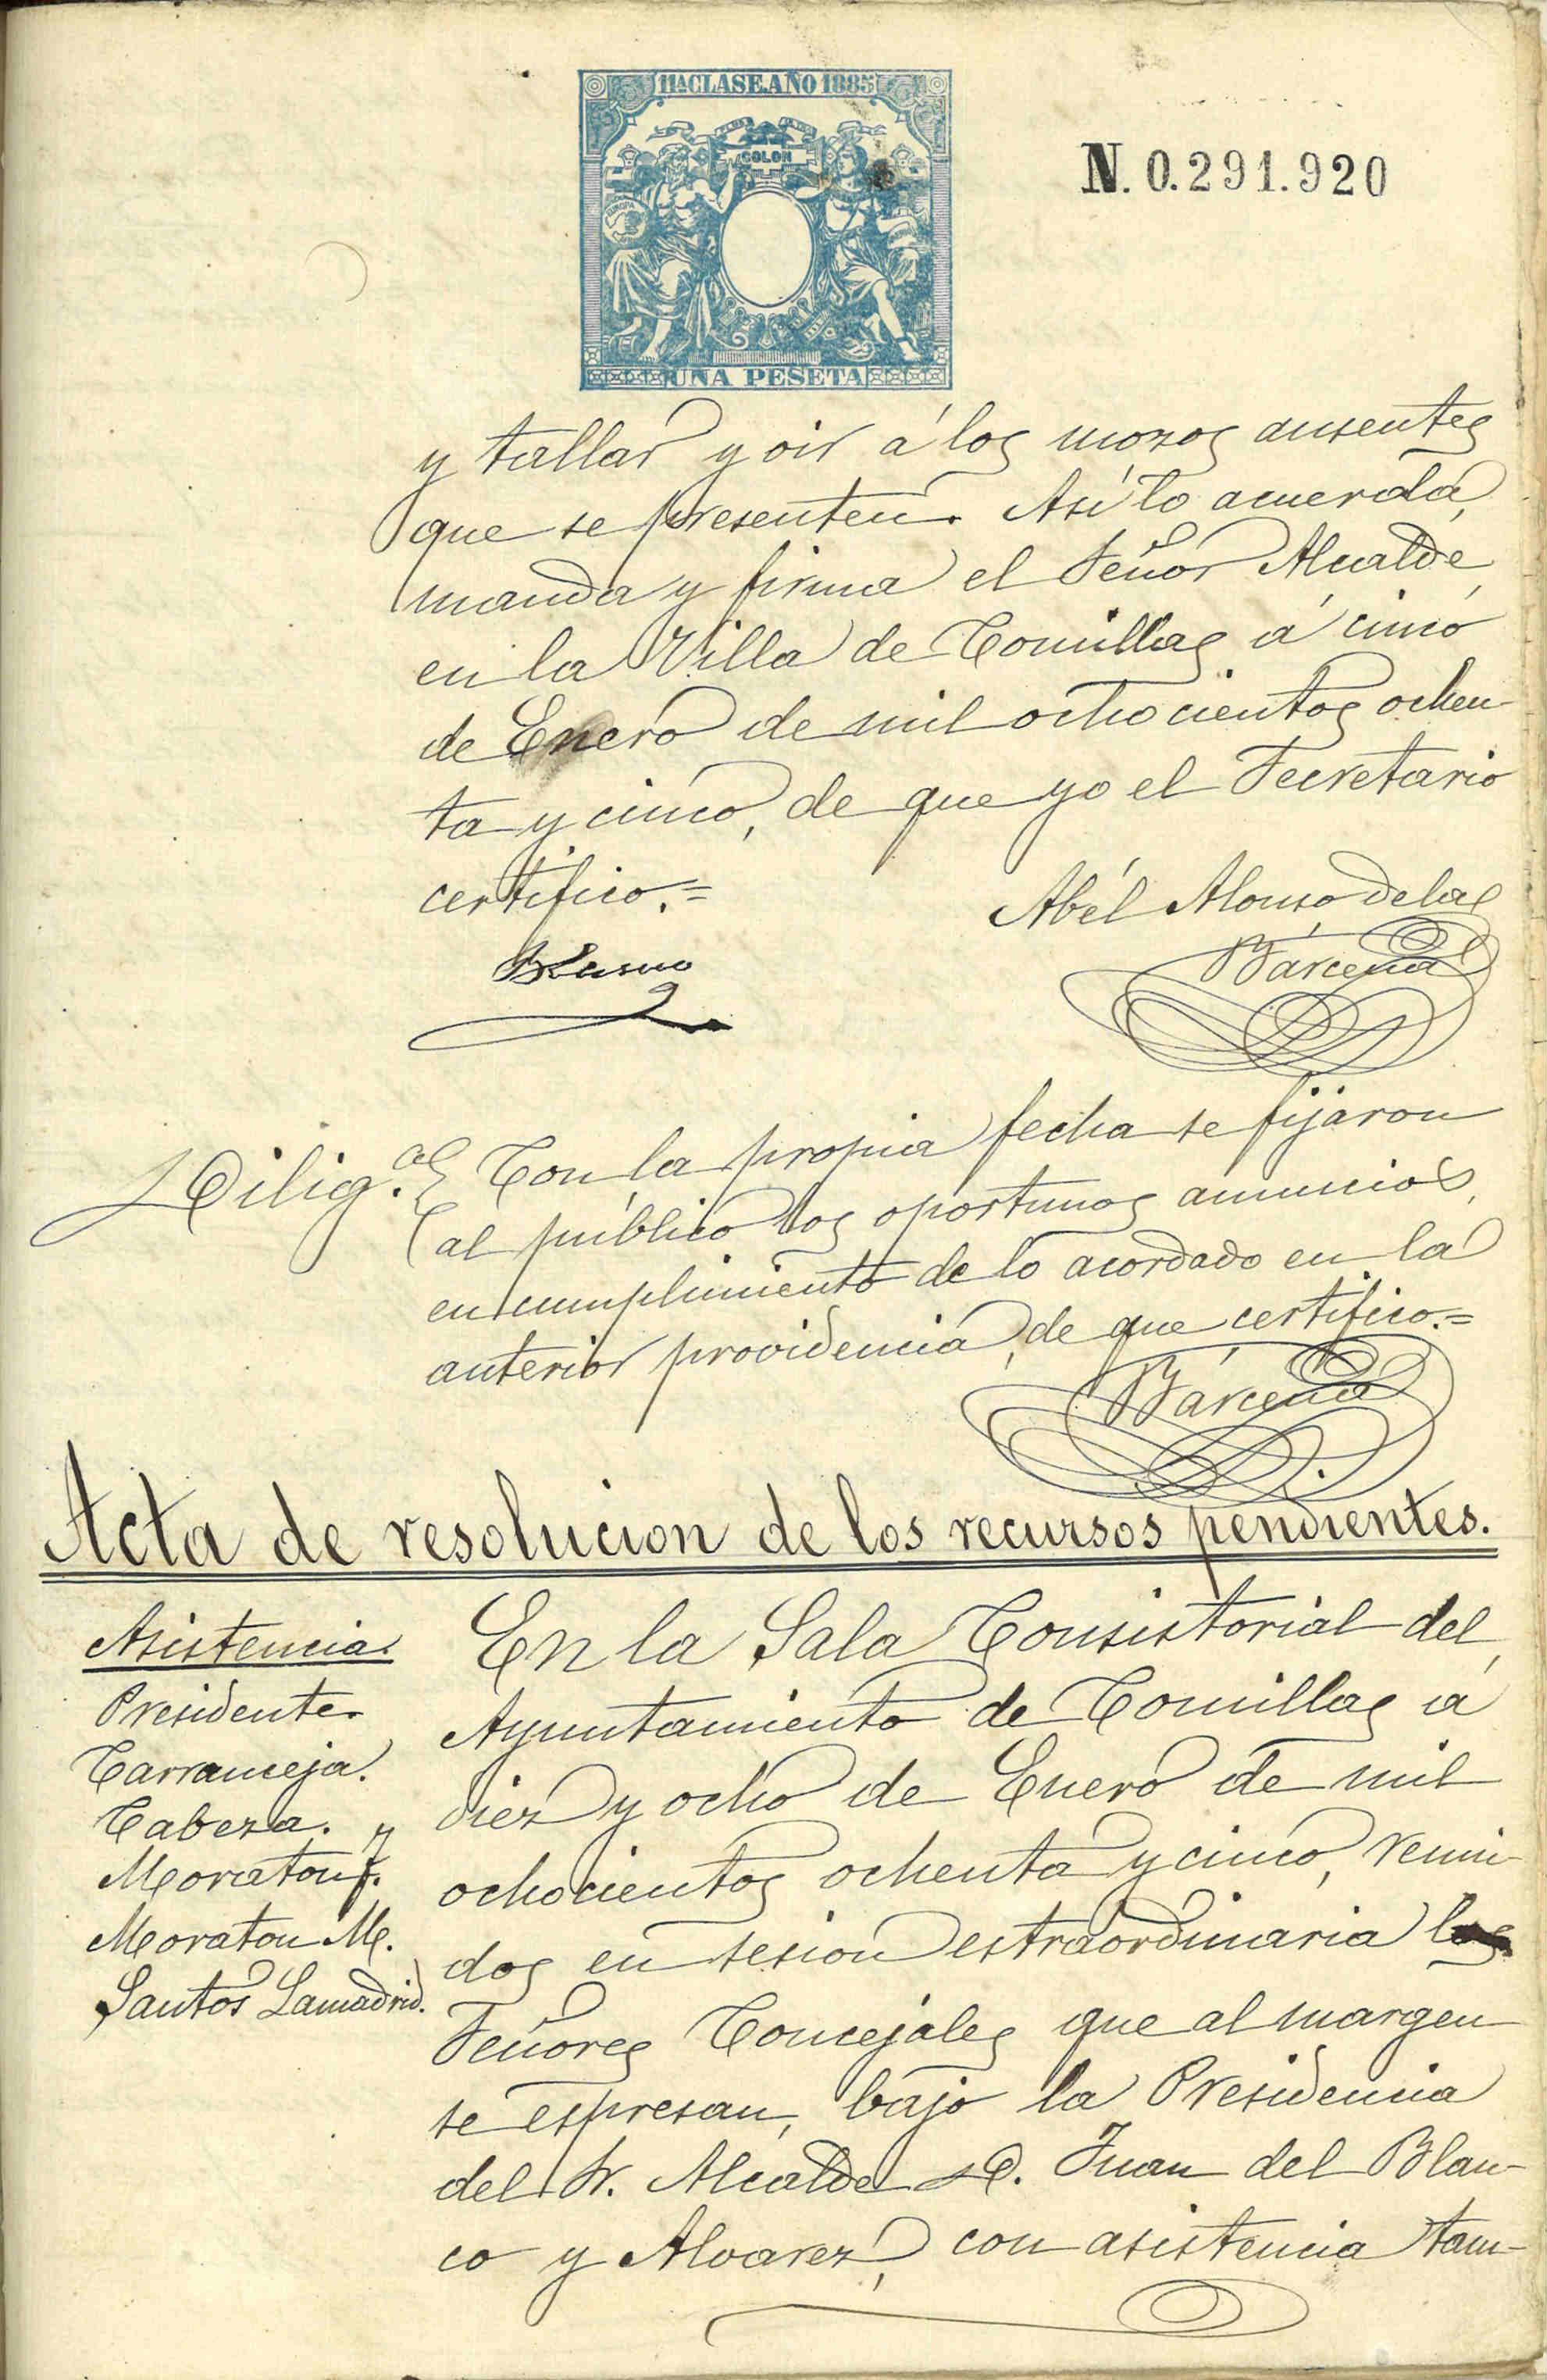 11ª CLASE. AÑO 1885
COLON
UNA PESETA
N. 0.291.920
y tallar y oir á los mozos ausentes
que se presenten. Así lo acuerda,
manda y firma el Señor Alcalde
en la Villa de Comillas á cinco
de Enero de mil ochocientos ochen-
ta y cinco, de que yo el Secretario
certifico.=
Blanco
Abél Alonso de la
Bárcena
Dilig.ª Con la propia fecha se fijaron
al público los oportunos anuncios,
en cumplimiento de lo acordado en la
anterior providencia, de que certifico.=
Bárcena
Acta de resolucion de los recursos pendientes.
Asistencia.
Presidente.
Carranceja.
Cabeza.
Moraton F.
Moraton M.
Santos Lamadrid.
En la Sala Consistorial del
Ayuntamiento de Comillas á
diez y ocho de Enero de mil
ochocientos ochenta y cinco, reuni-
dos en sesion estraordinaria los
Señores Concejales que al margen
se espresan, bajo la Presidencia
del Sr. Alcalde D. Juan del Blan-
co y Alvarez, con asistencia tam-